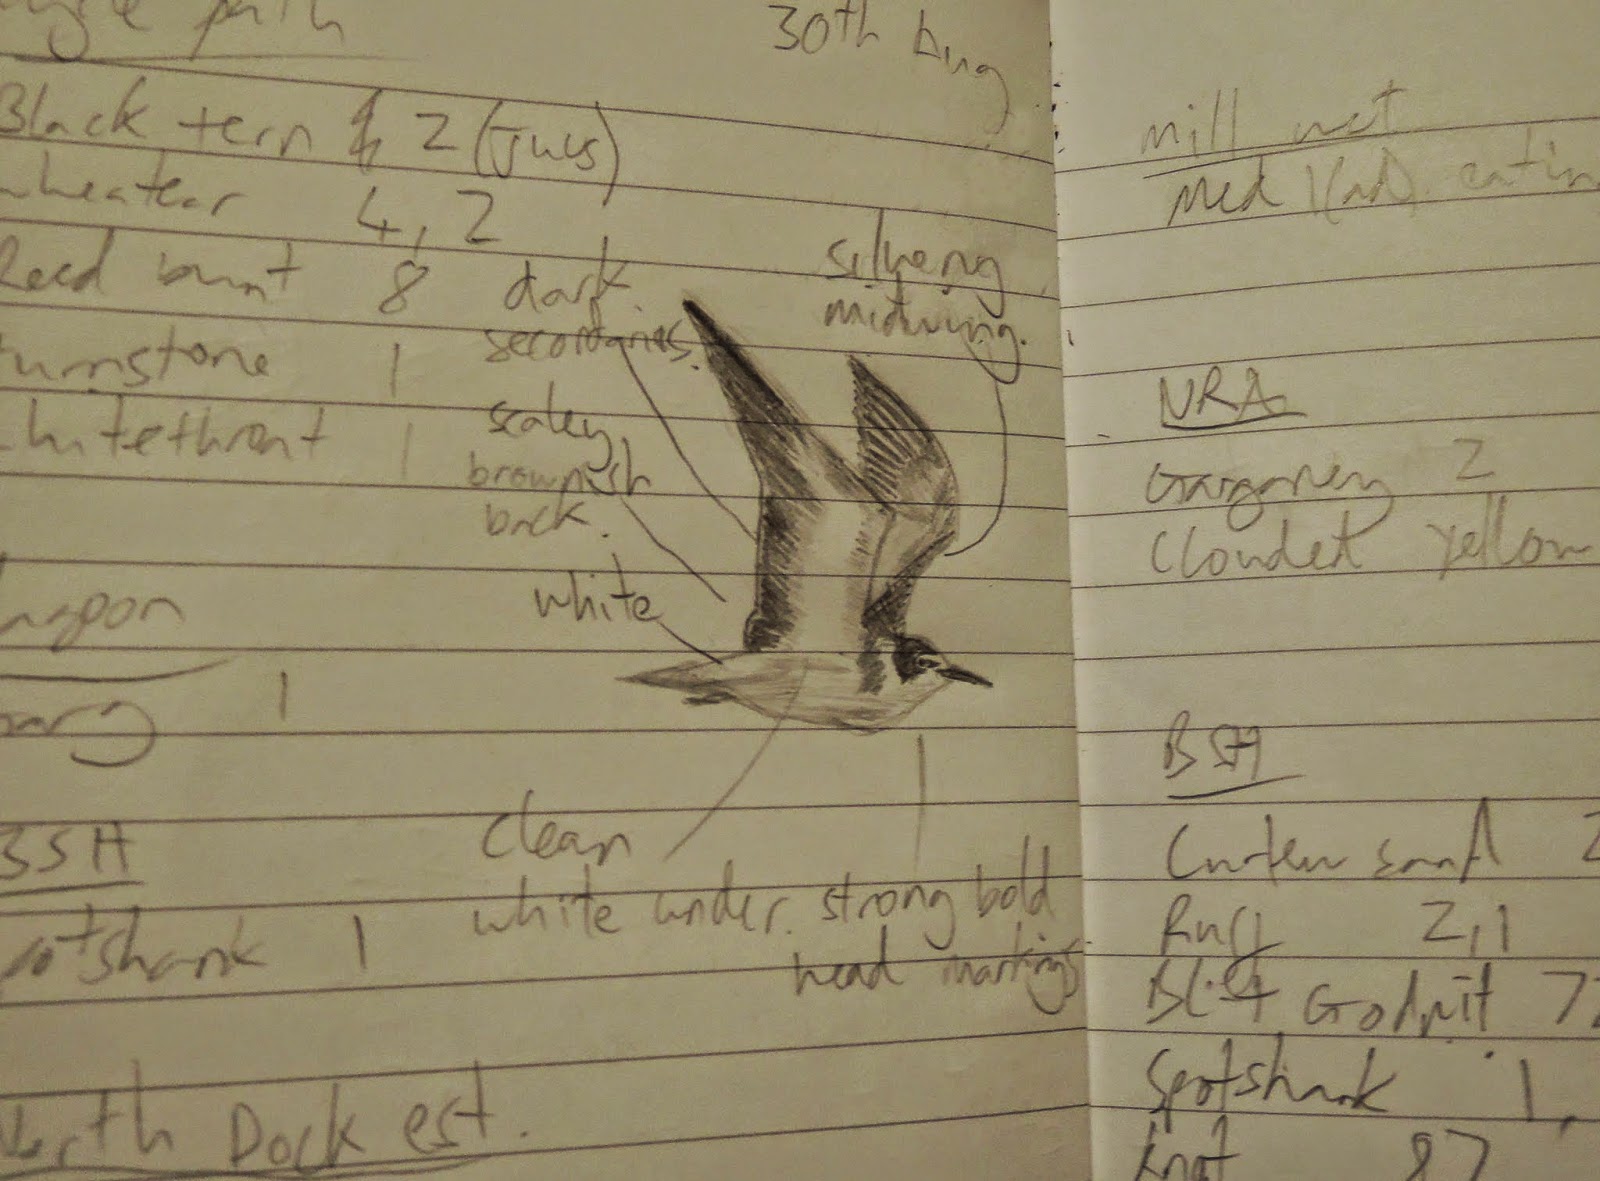 30th Aug
Black tern 2 (juvs)
wheatear 4, 2
Reed bunt 8
turnstone 1
whitethroat 1
dark
secondaries.
scaley,
brownish
back.
white
silvery
midwing.
1
BSH
spotshank 1
clean
white under.
strong bold
head markings
North Dock est.
mill
Med 1(ad). eatin
NRA
Garganey 2
Clouded yellow
BSH
Curlew sand 2
Ruff 2,1
Godwit
Spotshank 1,
Knot 87